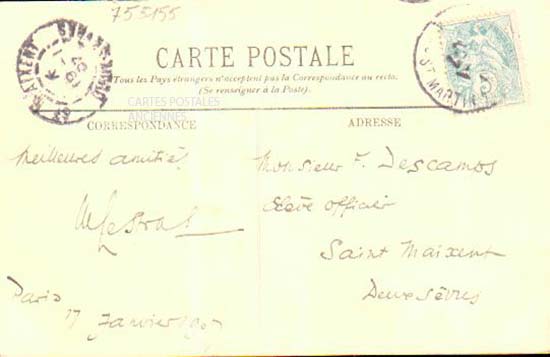 755155
CARTE POSTALE
Tous les Pays étrangers n'acceptent pas la Correspondance au recto.
(Se renseigner à la Poste.)
CARTES POSTALES
ANCIENNES
CORRESPONDANCE
Meilleures amitiés
Paris
17 Janvier
ADRESSE
Monsieur F. Descamps
Élève officier
Saint Maixent
Deux Sèvres
ST MARTIN